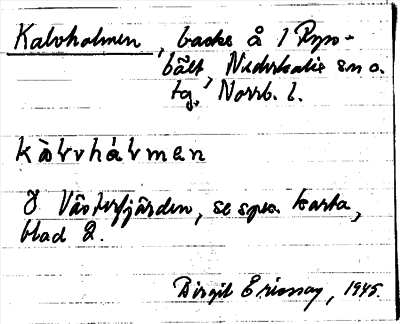 Kalvholmen, backe å 1 Rys-
bält, Nederkalix sn o.
tg, Norrb. l.
kàlvhálmen
Ö Västerfjärden, se spec. karta,
blad 2.
Birgit Ericsson, 1945.